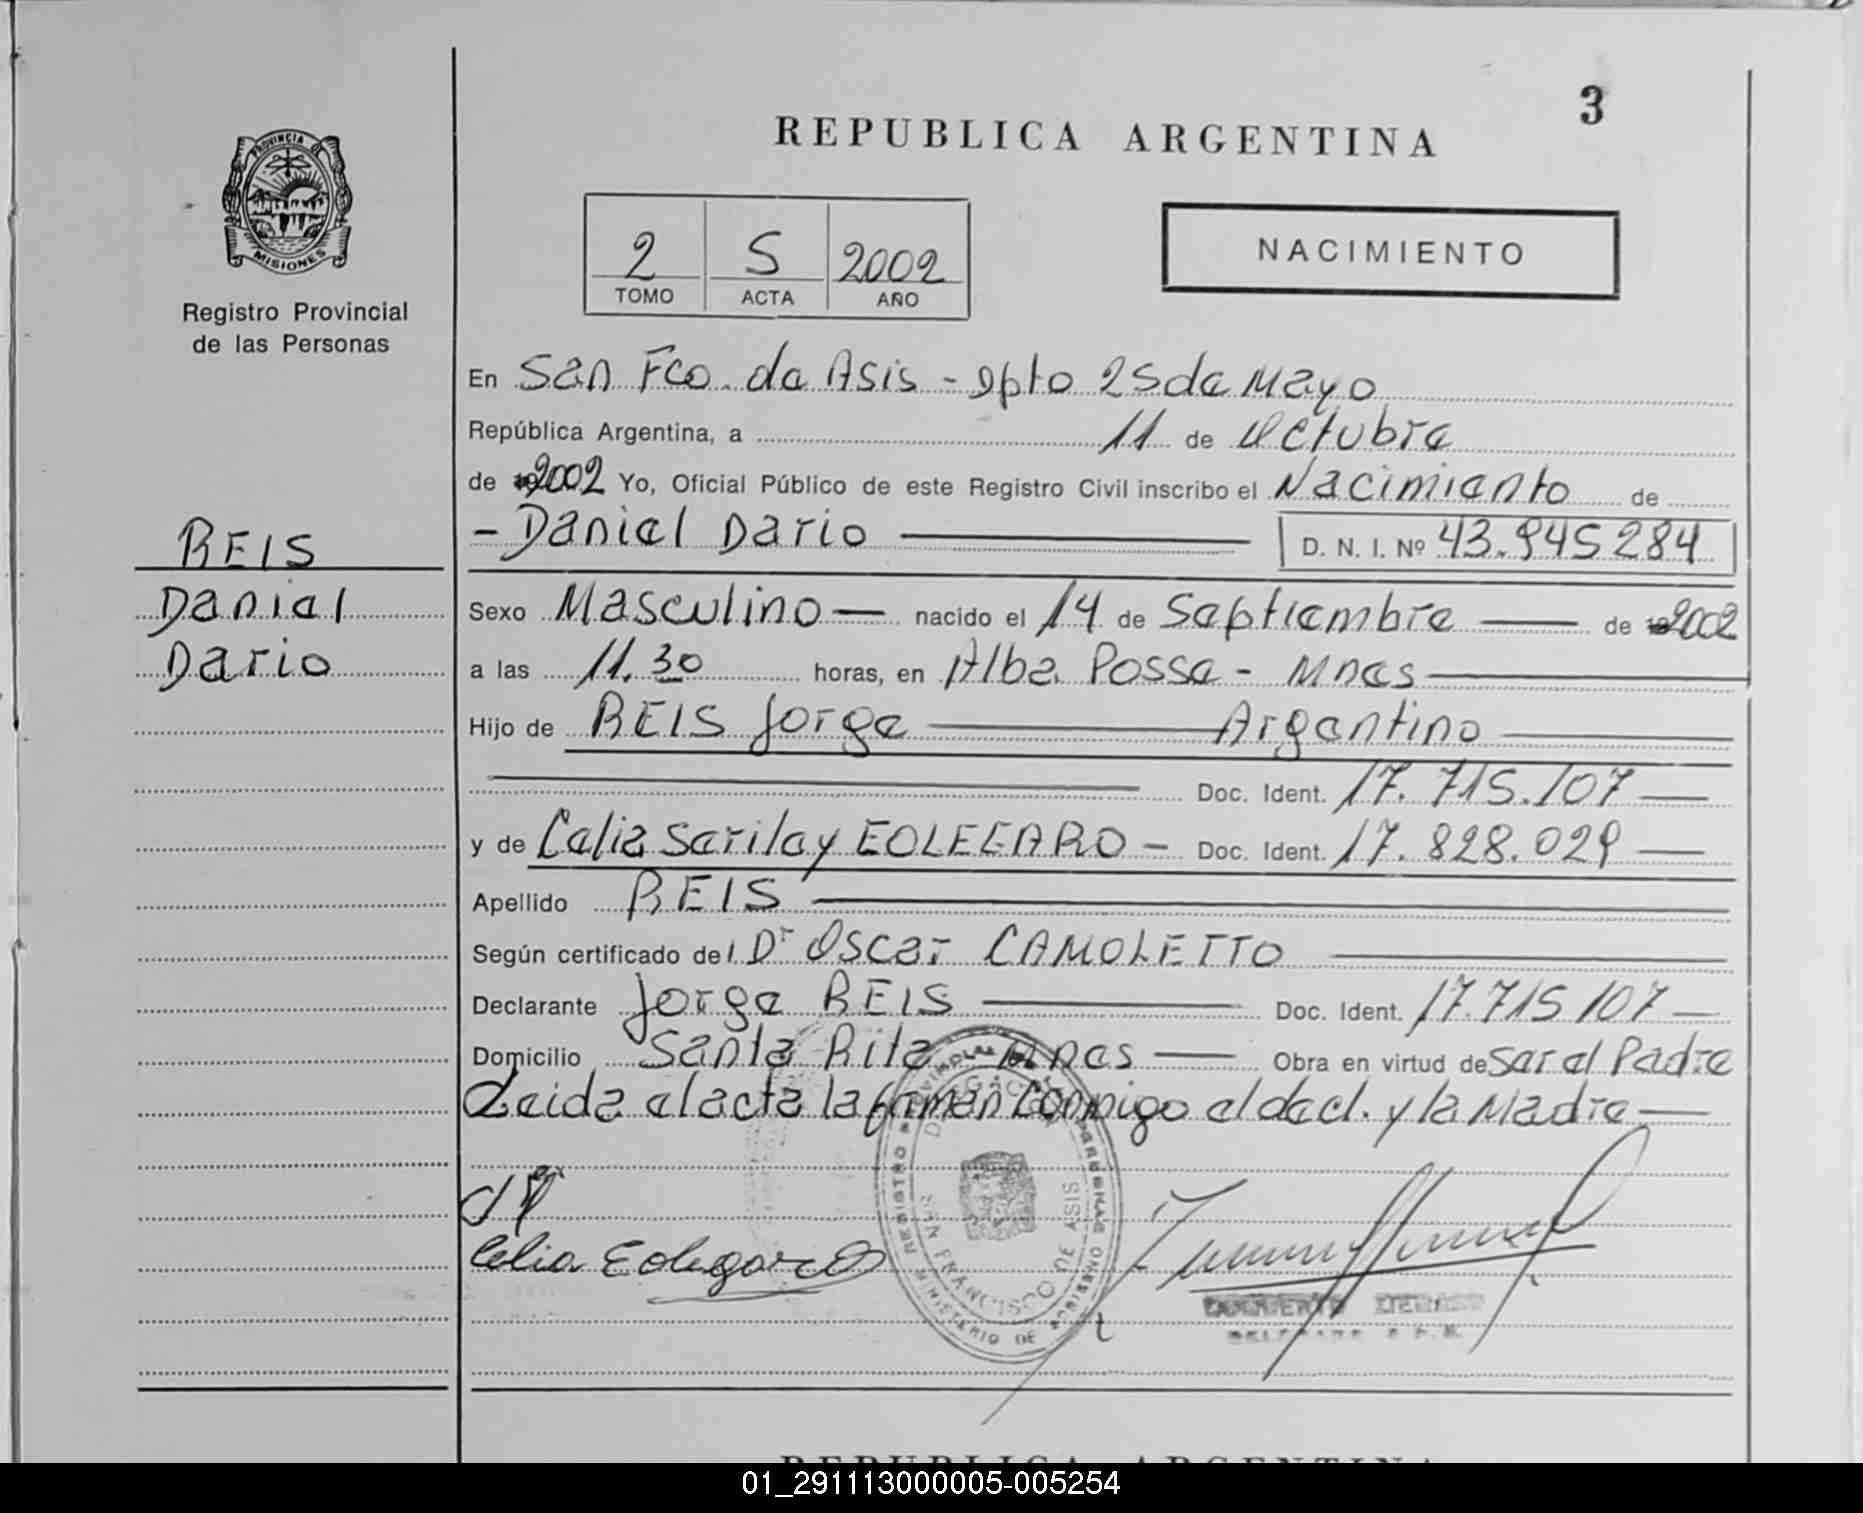 3
REPUBLICA ARGENTINA
PROVINCIA DE
MISIONES
2 5 2002
TOMO ACTA AÑO
NACIMIENTO
Registro Provincial
de las Personas
En San Fco. de Asis - Dpto 25 de Mayo
República Argentina, a 11 de Octubre
de 2002 Yo, Oficial Público de este Registro Civil inscribo el Nacimiento de
- Daniel Dario D. N. I. Nº 43.945284
REIS
Daniel
Dario
Sexo Masculino nacido el 14 de Septiembre de 2002
a las 11.30 horas, en Alba Posse - Mnes
Hijo de REIS Jorge Argentino
Doc. Ident. 17.715.107
y de Celia Sariloy EOLEGARO - Doc. Ident. 17.828.029
Apellido REIS
Según certificado del Dr Oscar CAMOLETTO
Declarante Jorge REIS Doc. Ident. 17.715 107
Domicilio Santa Rita - Mnes Obra en virtud de Ser el Padre
Leida el acta la firman Conmigo el decl. y la Madre
Celia Eolegaro
SAN FRANCISCO DE ASIS
MINISTERIO DE GOBIERNO
REPUBLICA ARGENTINA
01_291113000005-005254